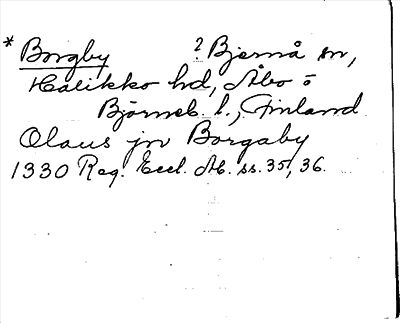 * Borgby ? Bjernå sn,
Halikko hd, Åbo o
Björneb. l., Finland
Olaus jn Borgaby
1330 Reg. Eccl. Ab. ss. 35, 36.